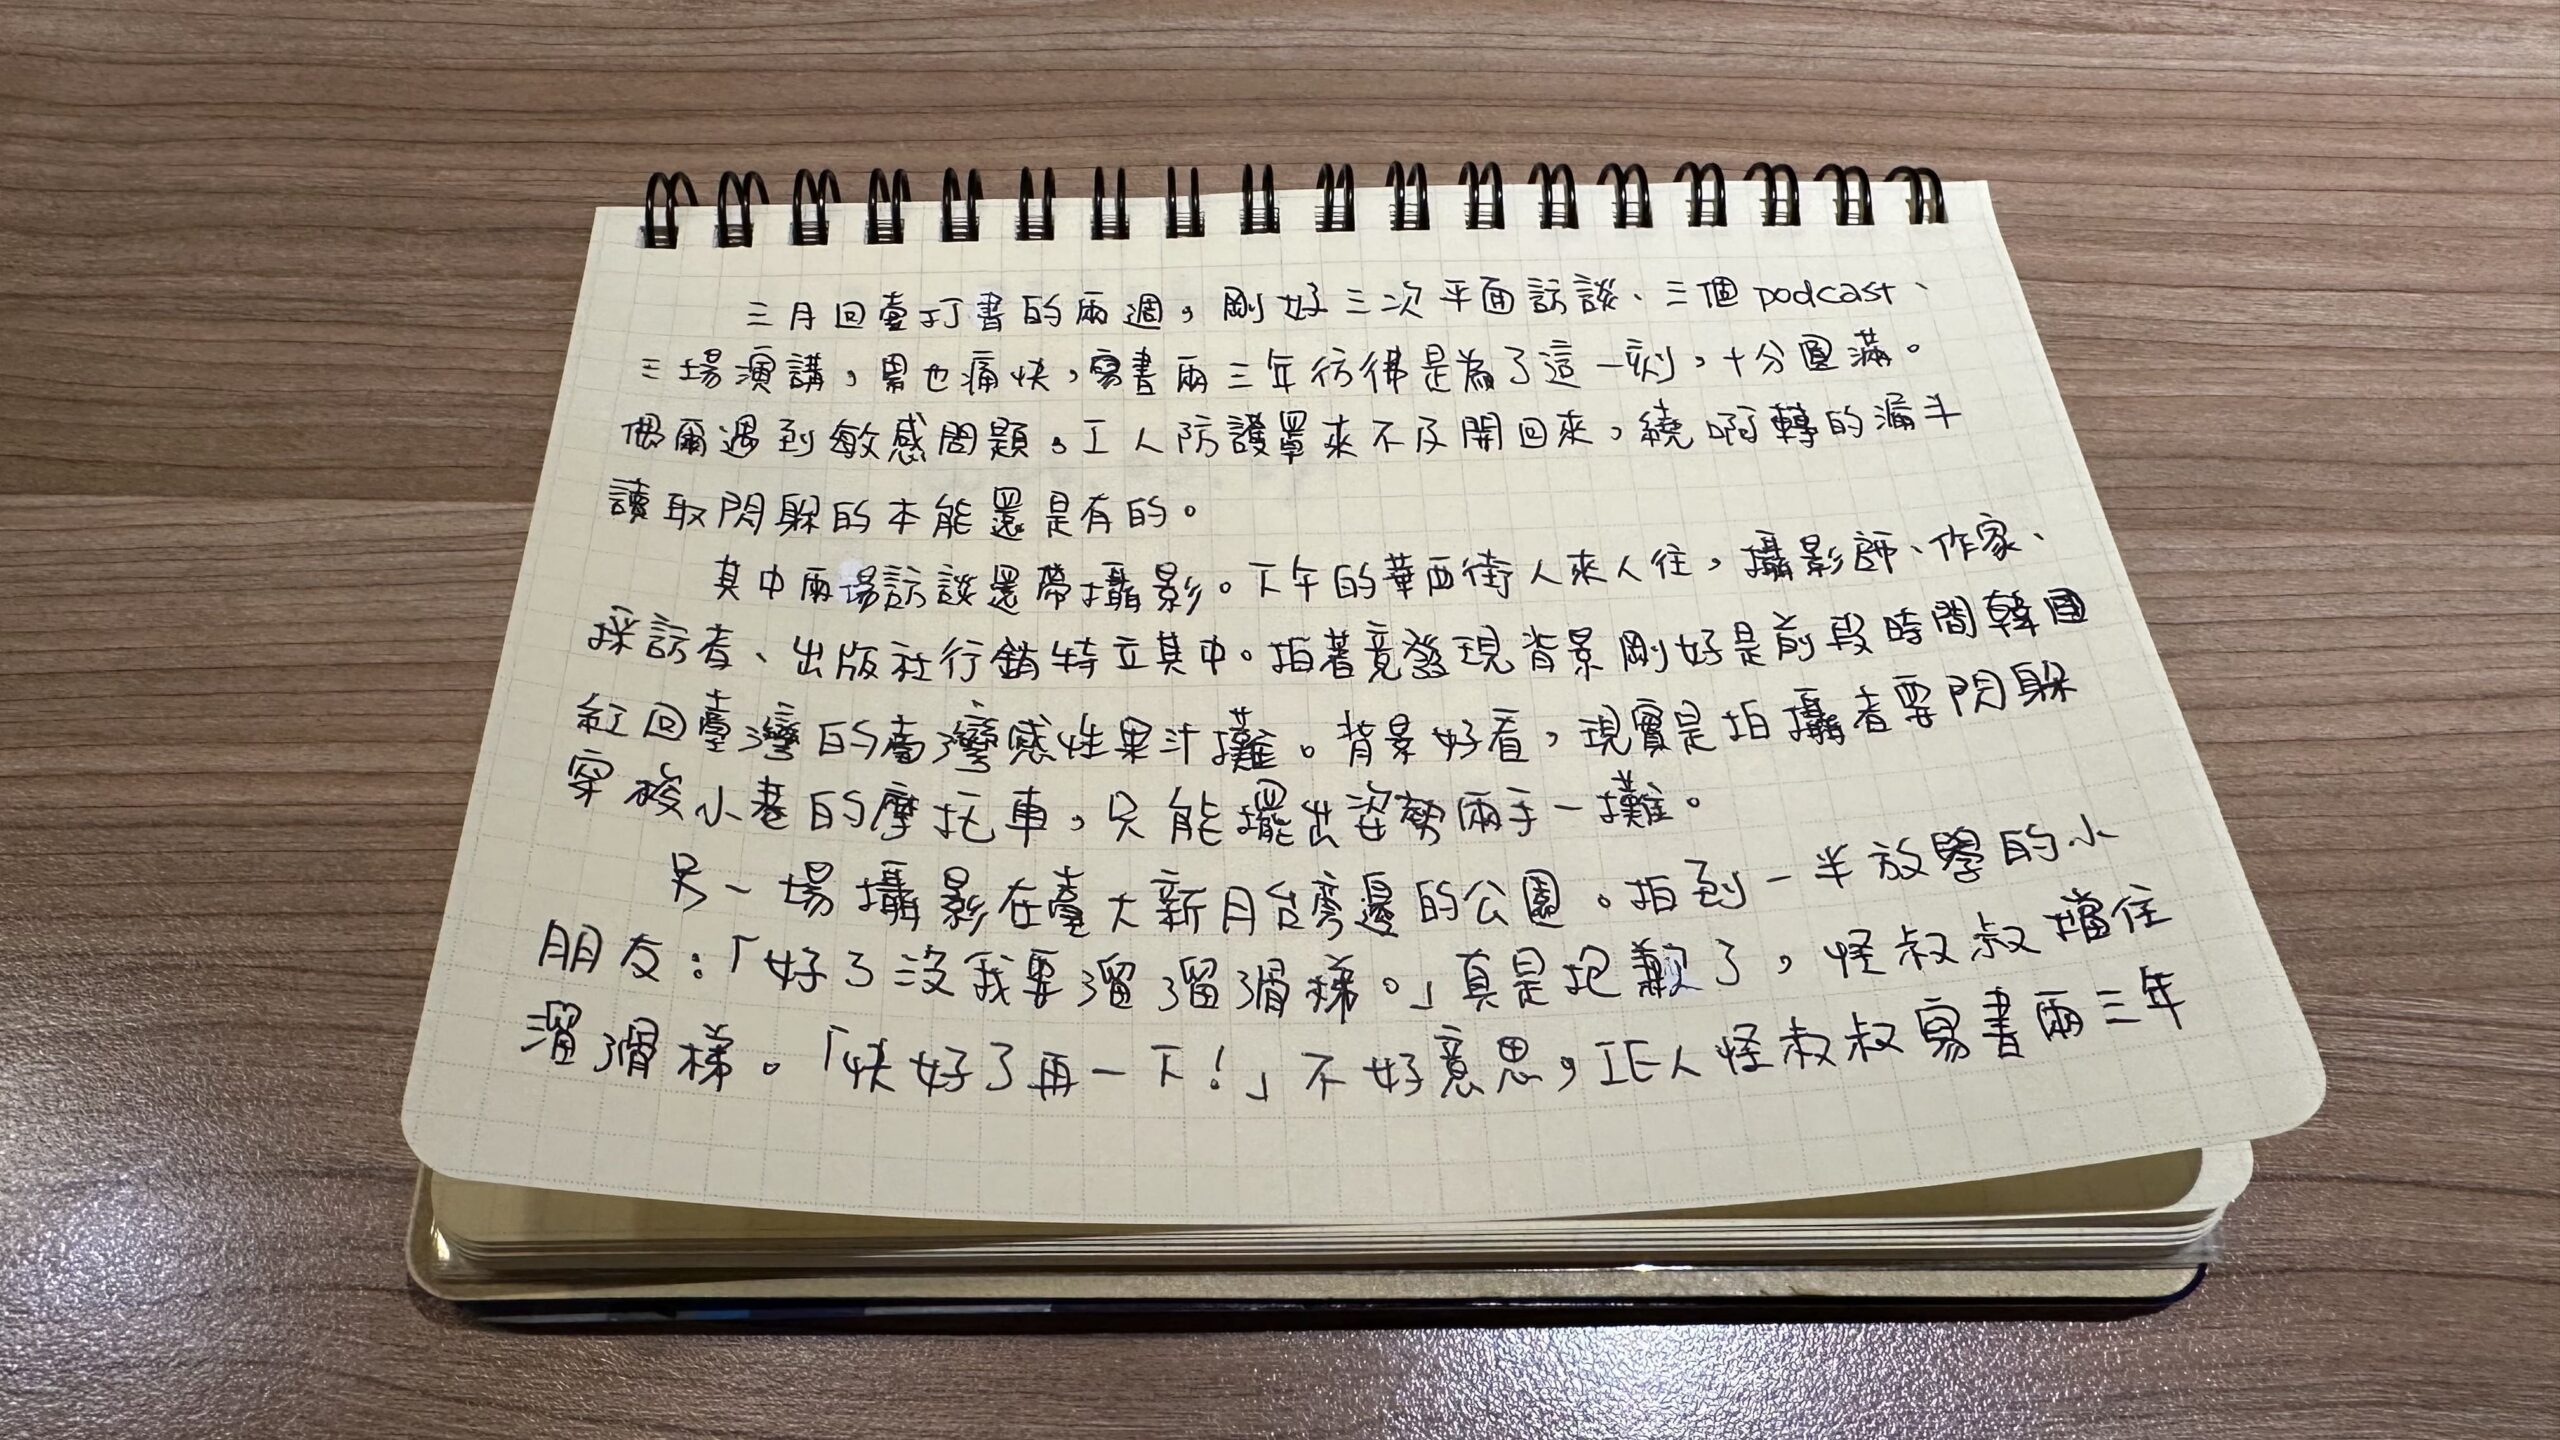 三月回臺打書的兩週，剛好三次平面訪談、三個podcast、
三場演講，累也痛快，寫書兩三年彷彿是為了這一刻，十分圓滿。
偶爾遇到敏感問題。工人防護罩來不及開回來，繞啊轉的漏斗
讀取閃躲的本能還是有的。
其中兩場訪談還帶攝影。下午的華西街人來人往，攝影師、作家、
採訪者、出版社行銷特立其中。拍著竟發現背景剛好是前段時間韓國
紅回臺灣的臺灣感性果汁攤。背景好看，現實是拍攝者要閃躲
穿梭小巷的摩托車，只能擺出姿勢兩手一攤。
另一場攝影在臺大新月台旁邊的公園。拍到一半放學的小
朋友：「好了沒我要溜溜滑梯。」真是抱歉了，怪叔叔擋住
溜滑梯。「快好了再一下！」不好意思，工人怪叔叔寫書兩三年